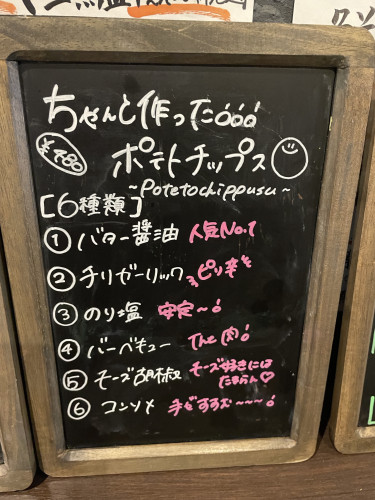 ちゃんと作った!!!
¥480 ポテトチップス
~Potetochippusu~
[6種類]
① バター醤油 人気No.1
② チリガーリック ピリ辛
③ のり塩 安定~!
④ バーベキュー The 肉!
⑤ チーズ胡椒 チーズ好きには
たまらん♡
⑥ コンソメ 手がすすむ~~~!